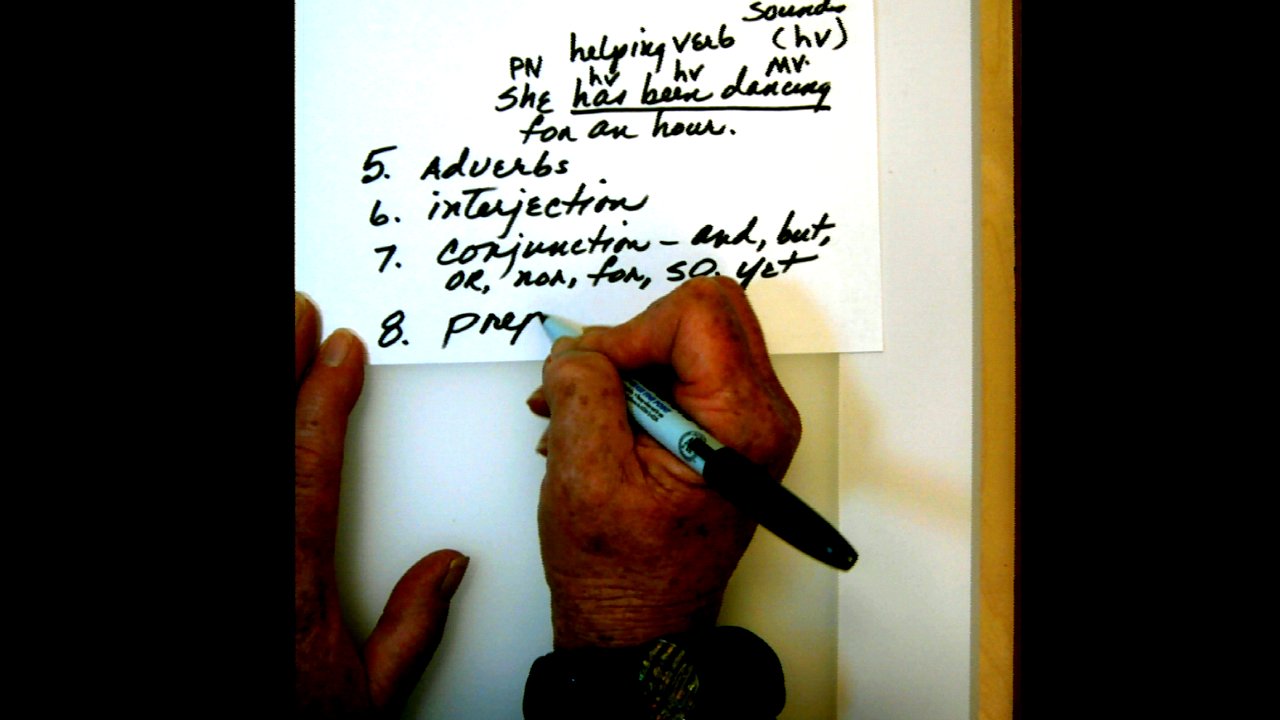 sounds
helping verb (hv)
PN hv hv MV.
She has been dancing
for an hour.
5. Adverbs
6. interjection
7. conjunction - and, but,
or, nor, for, so, yet
8. prep